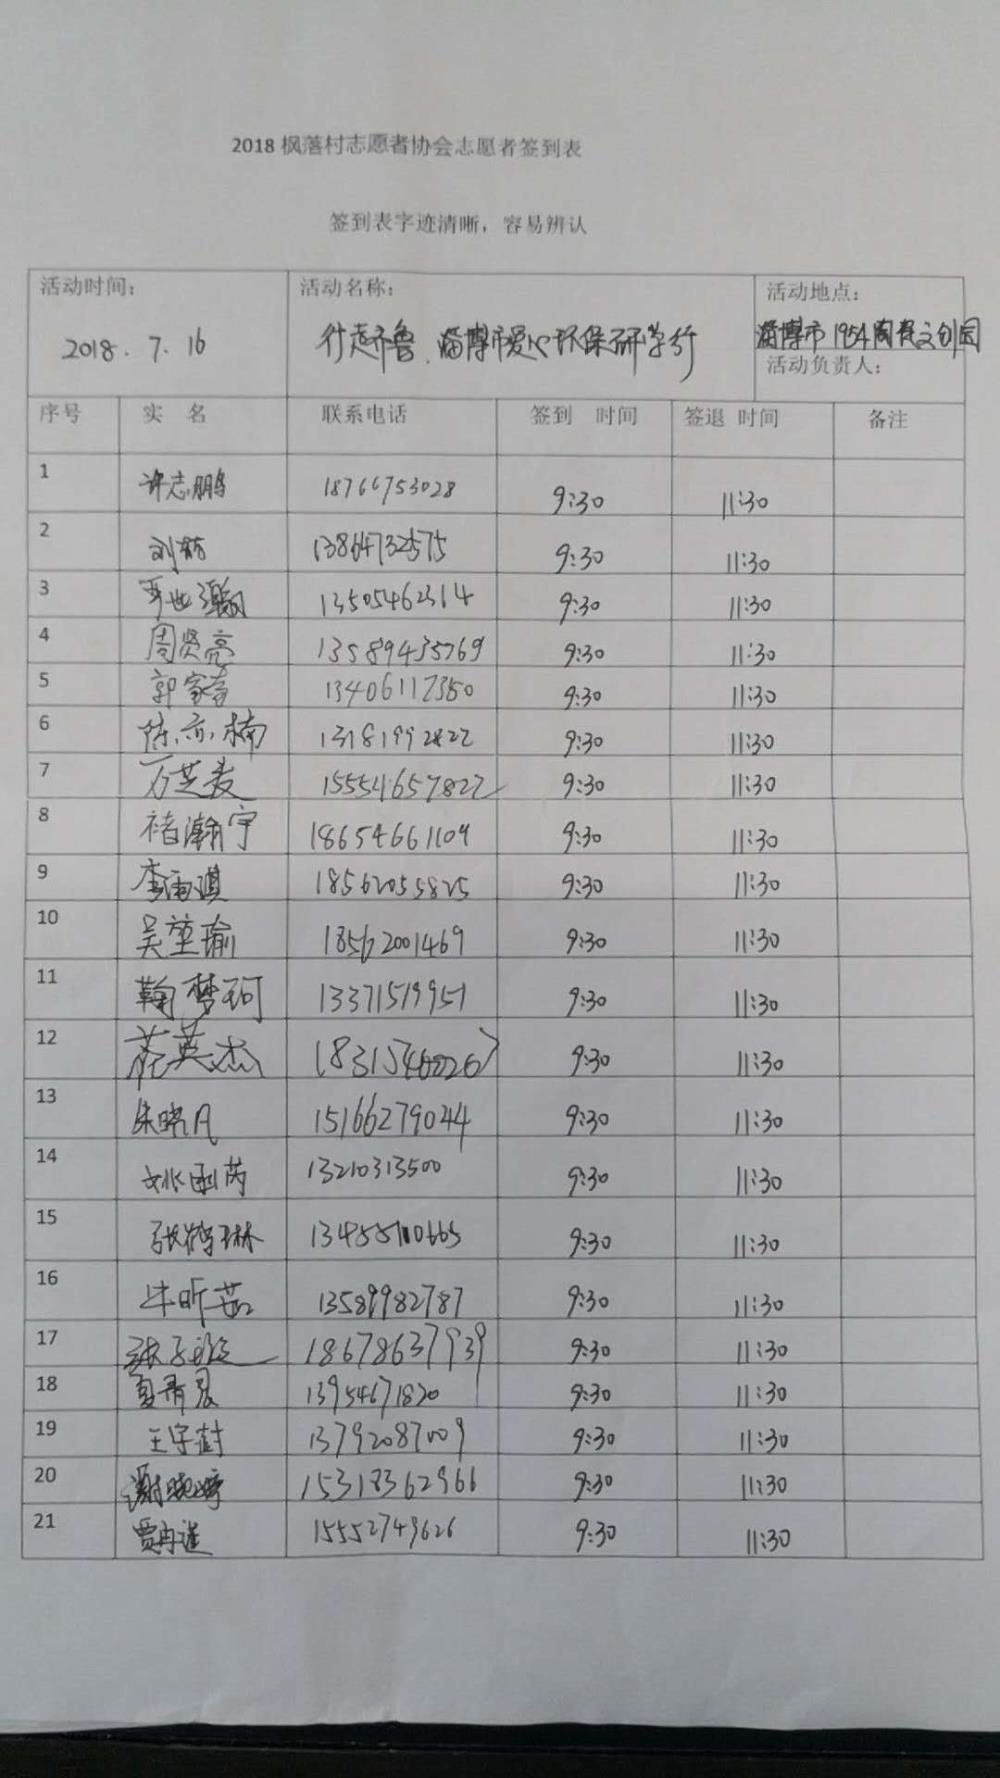 2018 枫落村志愿者协会志愿者签到表
签到表字迹清晰，容易辨认
活动时间： 活动名称： 活动地点：
2018.7.16 行走齐鲁.淄博市爱心环保研学行 淄博市1954陶瓷文创园
活动负责人：
序号 实 名 联系电话 签到 时间 签退 时间 备注
1 许志鹏 18766753028 9:30 11:30
2 刘 13864732575 9:30 11:30
3 13505462314 9:30 11:30
4 周贤亮 13589435769 9:30 11:30
5 郭家 13406112350 9:30 11:30
6 陈亦楠 13181992822 9:30 11:30
7 万芝麦 15554657822 9:30 11:30
8 褚瀚宇 18654661109 9:30 11:30
9 李雨琪 18562055825 9:30 11:30
10 吴堇瑜 18562001469 9:30 11:30
11 鞠梦珂 13371519951 9:30 11:30
12 英杰 9:30 11:30
13 朱晓凡 15166279044 9:30 11:30
14 姚函芮 13210313500 9:30 11:30
15 张鹤琳 9:30 11:30
16 牛昕茹 13589982787 9:30 11:30
17 张子 18678637939 9:30 11:30
18 夏 13954671820 9:30 11:30
19 王宇 13792087009 9:30 11:30
20 谢晓婷 15318362966 9:30 11:30
21 贾冉 15552749626 9:30 11:30